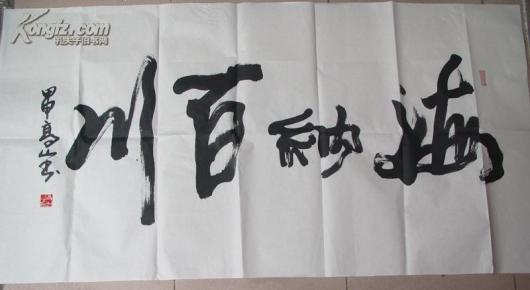 海纳百川
Kongfz.com
孔夫子旧书网